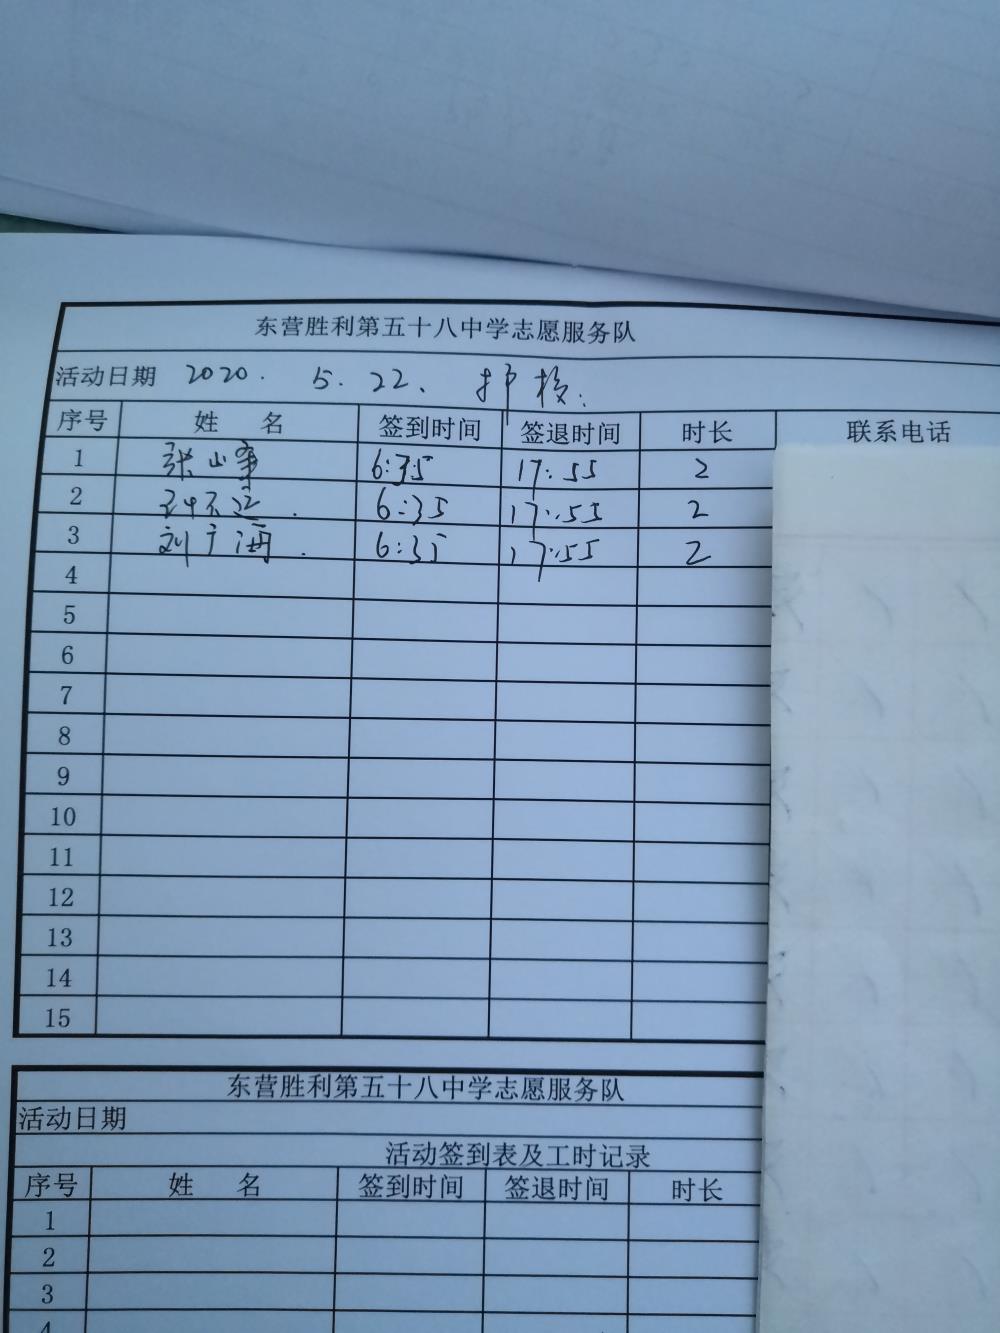 东营胜利第五十八中学志愿服务队
活动日期 2020. 5. 22. 护校:
序号 姓 名 签到时间 签退时间 时长 联系电话
1 张山军 6:35 17:55 2
2 6:35 17:55 2
3 刘广海. 6:35 17:55 2
4
5
6
7
8
9
10
11
12
13
14
15
东营胜利第五十八中学志愿服务队
活动日期
活动签到表及工时记录
序号 姓 名 签到时间 签退时间 时长
1
2
3
4